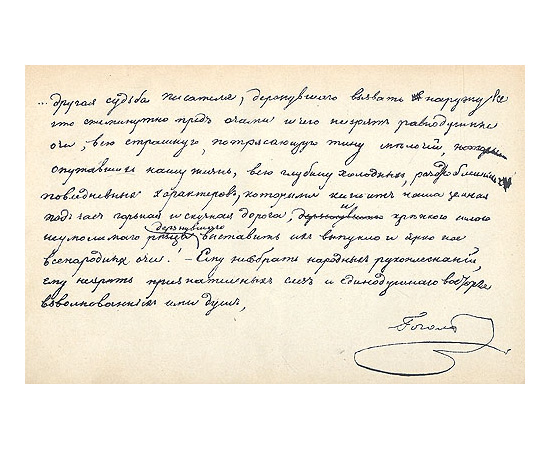 ... другая судьба писателя, дерзнувшаго вызвать наружу все
что ежеминутно предъ очами и чего незрятъ равнодушные
очи, всю страшную, потрясающую тину мелочей,
опутавшихъ нашу жизнь, всю глубину холодныхъ, раздробленныхъ
повседневныхъ характеровъ, которыми кишитъ наша земная
подъ часъ горькая и скучная дорога, и крѣпкою силою
неумолимаго рѣзца дерзнувшаго выставить ихъ выпукло и ярко на
всенародныя очи! — Ему несобрать народныхъ рукоплесканій,
ему незрѣть признательныхъ слезъ и единодушнаго восторга
взволнованныхъ ими душъ,
Гоголь